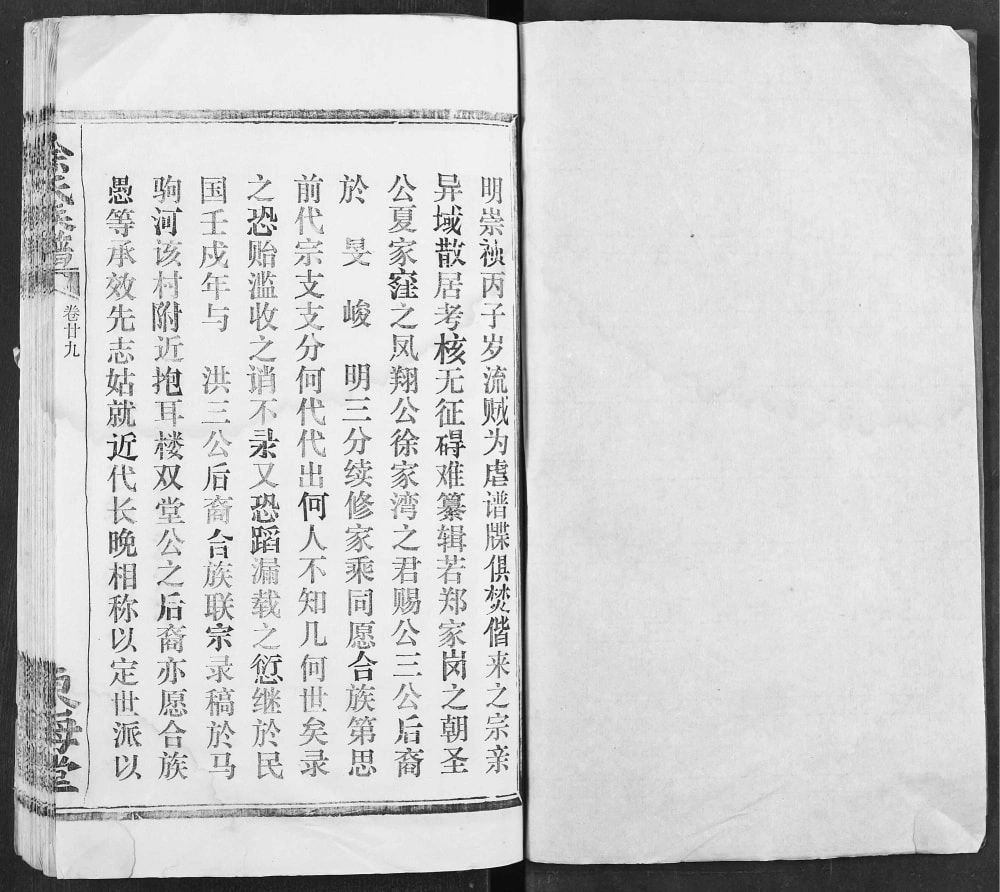 明崇祯丙子岁流贼为虐谱牒俱焚偕来之宗亲
异域散居考核无征碍难纂辑若郑家岗之朝圣
公夏家窪之凤翔公徐家湾之君赐公三公后裔
於 旻 峻 明三分续修家乘同愿合族第思
前代宗支支分何代代出何人不知几何世矣录
之恐贻滥收之诮不录又恐蹈漏载之愆继於民
国壬戍年与 洪三公后裔合族联宗录稿於马
驹河该村附近抱耳楼双堂公之后裔亦愿合族
愚等承效先志姑就近代长晚相称以定世派以
徐氏族譜
卷廿九
東海堂